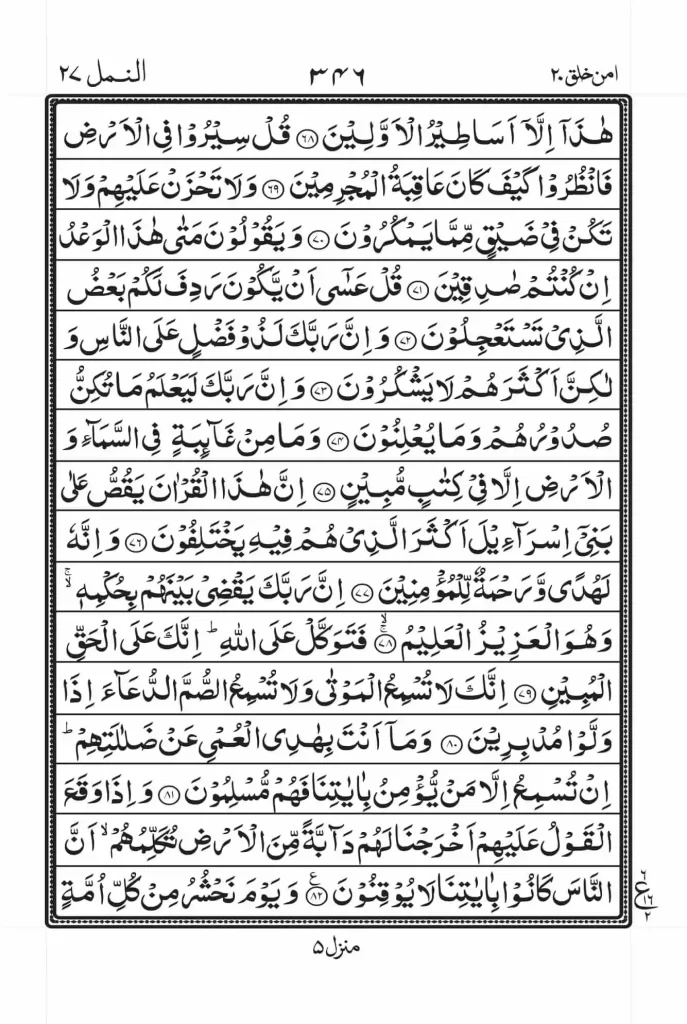 امن خلق ٢٠ ٣٤٦ النمل ٢٧
هٰذَاۤ اِلَّاۤ اَسَاطِيْرُ الْاَوَّلِيْنَ ۝٦٨ قُلْ سِيْرُوْا فِى الْاَرْضِ
فَانْظُرُوْا كَيْفَ كَانَ عَاقِبَةُ الْمُجْرِمِيْنَ ۝٦٩ وَلَا تَحْزَنْ عَلَيْهِمْ وَلَا
تَكُنْ فِىْ ضَيْقٍ مِّمَّا يَمْكُرُوْنَ ۝٧٠ وَيَقُوْلُوْنَ مَتٰى هٰذَا الْوَعْدُ
اِنْ كُنْتُمْ صٰدِقِيْنَ ۝٧١ قُلْ عَسٰٓى اَنْ يَّكُوْنَ رَدِفَ لَكُمْ بَعْضُ
الَّذِىْ تَسْتَعْجِلُوْنَ ۝٧٢ وَاِنَّ رَبَّكَ لَذُوْ فَضْلٍ عَلَى النَّاسِ وَ
لٰكِنَّ اَكْثَرَهُمْ لَا يَشْكُرُوْنَ ۝٧٣ وَاِنَّ رَبَّكَ لَيَعْلَمُ مَا تُكِنُّ
صُدُوْرُهُمْ وَمَا يُعْلِنُوْنَ ۝٧٤ وَمَا مِنْ غَآئِبَةٍ فِى السَّمَآءِ وَ
الْاَرْضِ اِلَّا فِىْ كِتٰبٍ مُّبِيْنٍ ۝٧٥ اِنَّ هٰذَا الْقُرْاٰنَ يَقُصُّ عَلٰى
بَنِىْۤ اِسْرَآءِيْلَ اَكْثَرَ الَّذِىْ هُمْ فِيْهِ يَخْتَلِفُوْنَ ۝٧٦ وَاِنَّهٗ
لَهُدًى وَّرَحْمَةٌ لِّلْمُؤْمِنِيْنَ ۝٧٧ اِنَّ رَبَّكَ يَقْضِىْ بَيْنَهُمْ بِحُكْمِهٖ ۚ
وَهُوَ الْعَزِيْزُ الْعَلِيْمُ ۝٧٨ فَتَوَكَّلْ عَلَى اللّٰهِ ؕ اِنَّكَ عَلَى الْحَقِّ
الْمُبِيْنِ ۝٧٩ اِنَّكَ لَا تُسْمِعُ الْمَوْتٰى وَلَا تُسْمِعُ الصُّمَّ الدُّعَآءَ اِذَا
وَلَّوْا مُدْبِرِيْنَ ۝٨٠ وَمَاۤ اَنْتَ بِهٰدِى الْعُمْىِ عَنْ ضَلٰلَتِهِمْ ؕ
اِنْ تُسْمِعُ اِلَّا مَنْ يُّؤْمِنُ بِاٰيٰتِنَا فَهُمْ مُّسْلِمُوْنَ ۝٨١ وَاِذَا وَقَعَ
الْقَوْلُ عَلَيْهِمْ اَخْرَجْنَا لَهُمْ دَآبَّةً مِّنَ الْاَرْضِ تُكَلِّمُهُمْ ۙ اَنَّ
النَّاسَ كَانُوْا بِاٰيٰتِنَا لَا يُوْقِنُوْنَ ۝٨٢ وَيَوْمَ نَحْشُرُ مِنْ كُلِّ اُمَّةٍ
٦ ع ١٦ ٢
منزل ٥